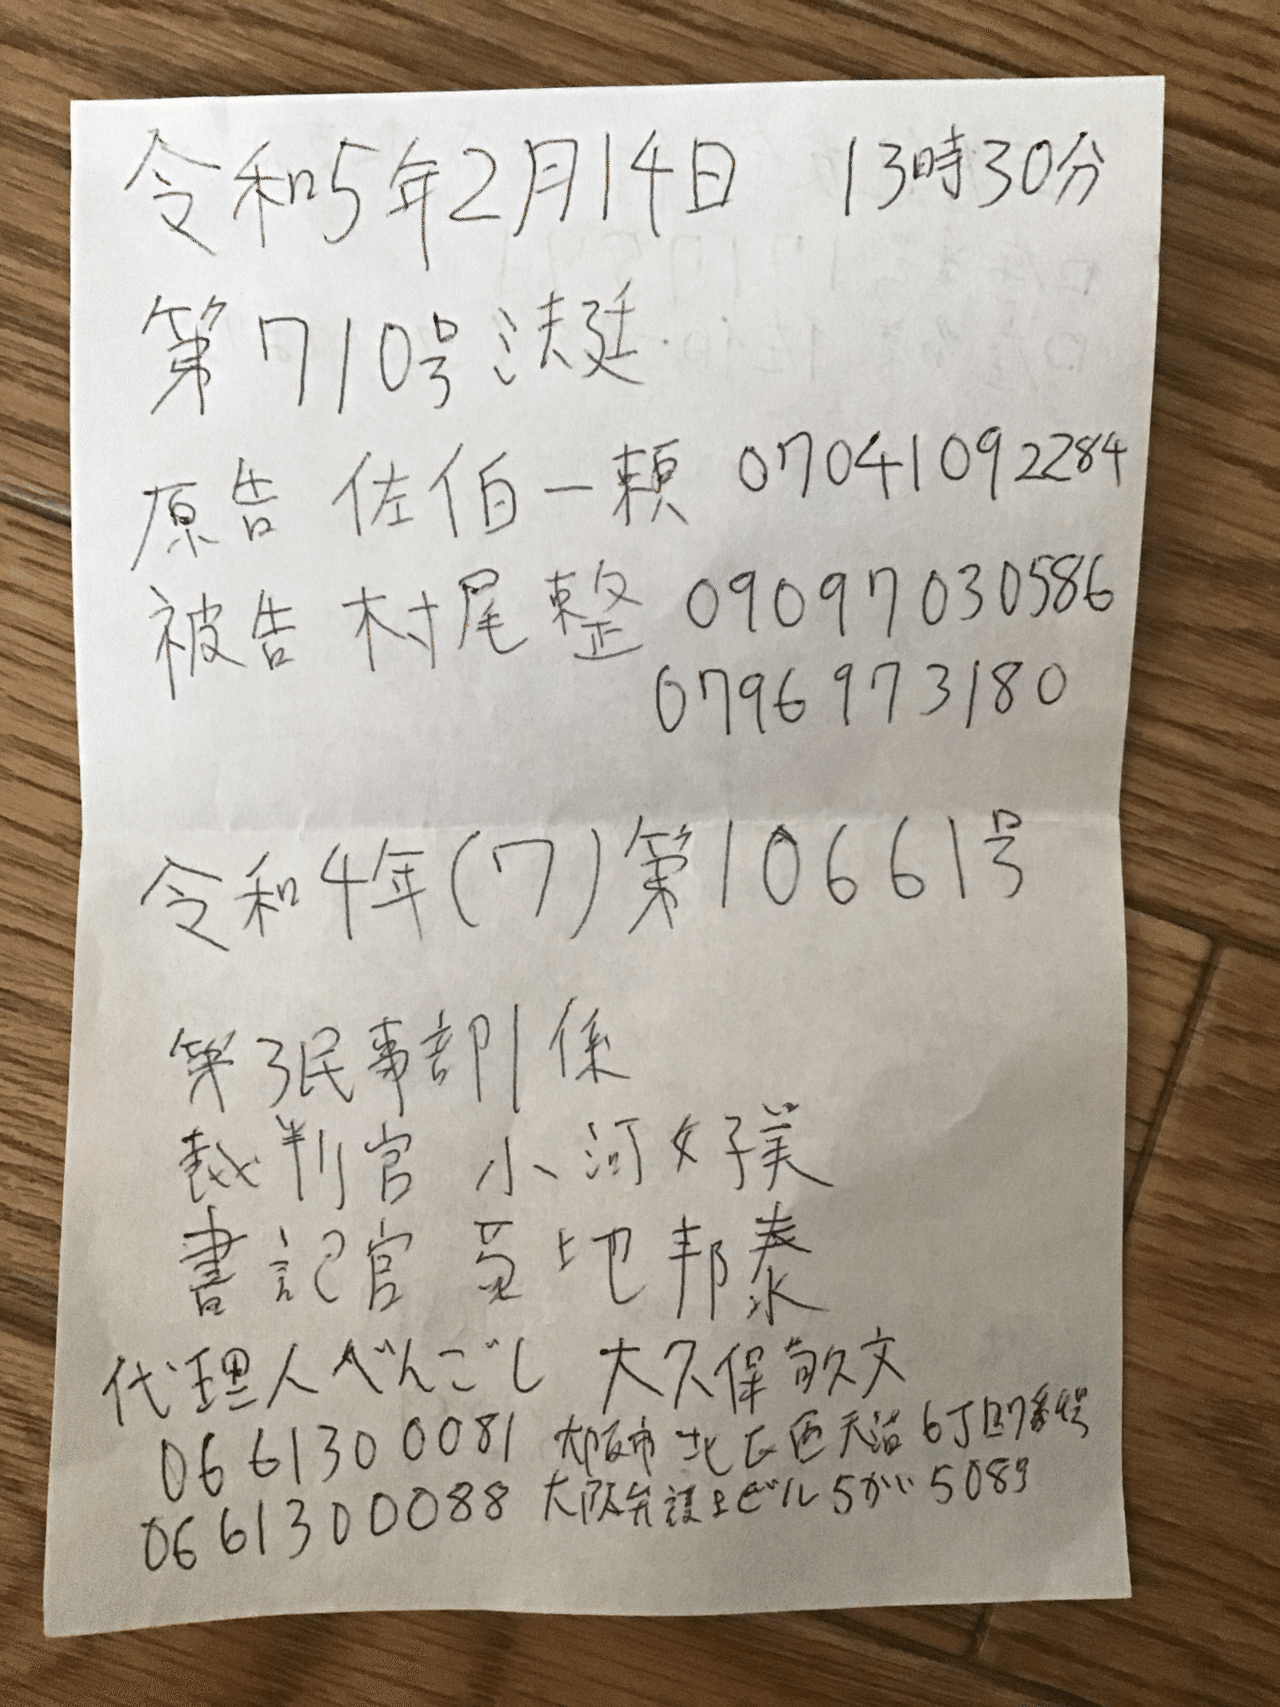 令和5年2月14日 13時30分
第710号法廷
原告 佐伯一頼 07041092284
被告 村尾整 09097030586
0796973180
令和4年(ワ)第10661号
第3民事部1係
裁判官 小河好美
書記官 地邦泰
代理人べんごし 大久保敬文
0661300081 大阪市北区西天満6丁目7番4号
0661300088 大阪弁護士ビル5かい 5089